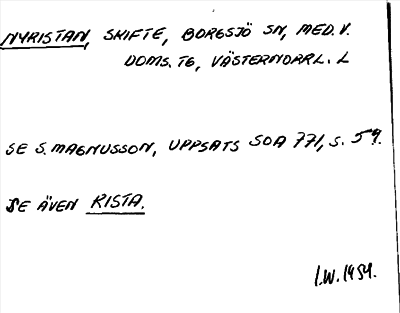 NYRISTAN, SKIFTE, BORGSJÖ SN, MED. V.
DOMS. TG, VÄSTERNORRL. L
SE S. MAGNUSSON, UPPSATS SOA 771, S. 59.
SE ÄVEN RISTA.
I.W. 1954.